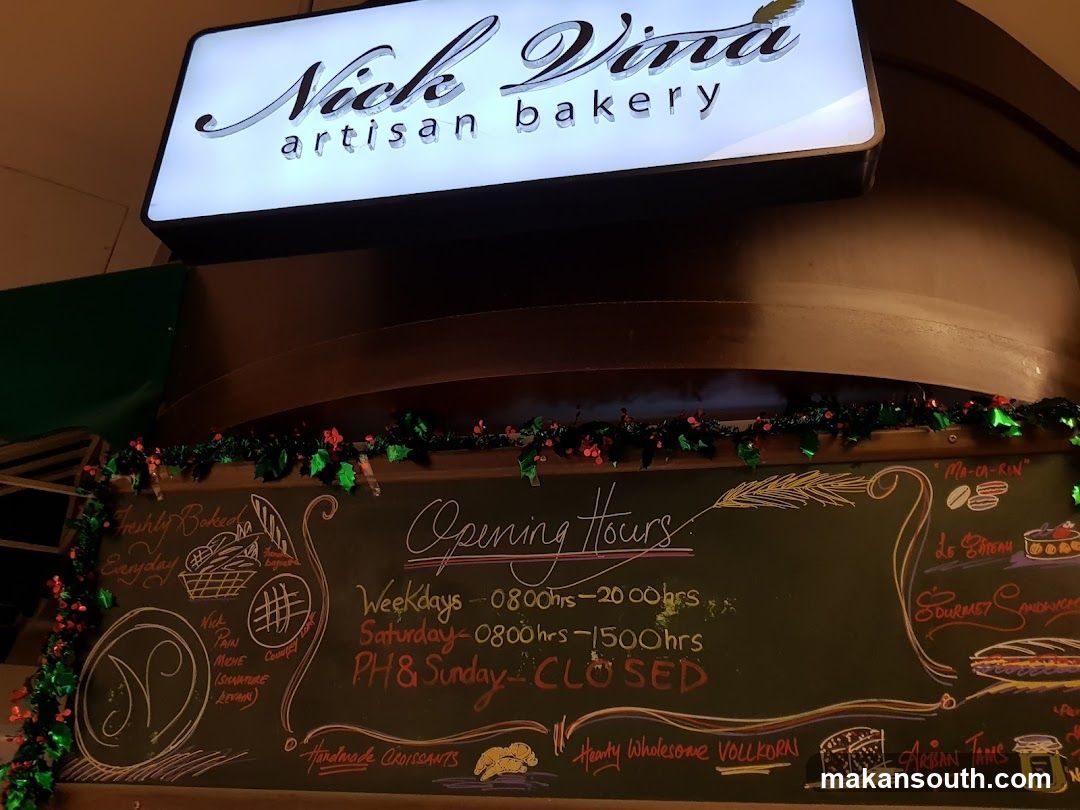 Nick Vina
artisan bakery
Opening Hours
Weekdays - 0800hrs - 2000hrs
Saturday - 0800hrs - 1500hrs
PH & Sunday - CLOSED
Freshly Baked
Everyday
Nick
PAIN
MICHE
(SIGNATURE
LEVAIN)
N
"MA-CA-RON"
LE GÂTEAU
GOURMET SANDWICH
Handmade CROISSANTS
Hearty Wholesome VOLLKORN
ARTISAN JAMS
makansouth.com